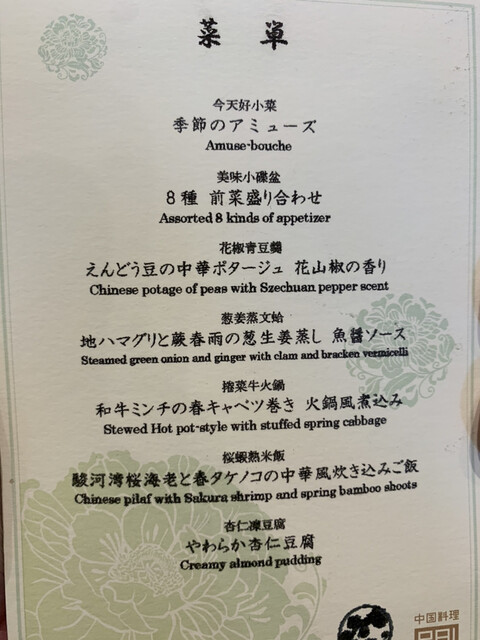 菜 単
今天好小菜
季節のアミューズ
Amuse-bouche
美味小碟盆
8種 前菜盛り合わせ
Assorted 8 kinds of appetizer
花椒青豆羹
えんどう豆の中華ポタージュ 花山椒の香り
Chinese potage of peas with Szechuan pepper scent
葱姜蒸文蛤
地ハマグリと蕨春雨の葱生姜蒸し 魚醤ソース
Steamed green onion and ginger with clam and bracken vermicelli
捲菜牛火鍋
和牛ミンチの春キャベツ巻き 火鍋風煮込み
Stewed Hot pot-style with stuffed spring cabbage
桜蝦熟米飯
駿河湾桜海老と春タケノコの中華風炊き込みご飯
Chinese pilaf with Sakura shrimp and spring bamboo shoots
杏仁凍豆腐
やわらか杏仁豆腐
Creamy almond pudding
中国料理